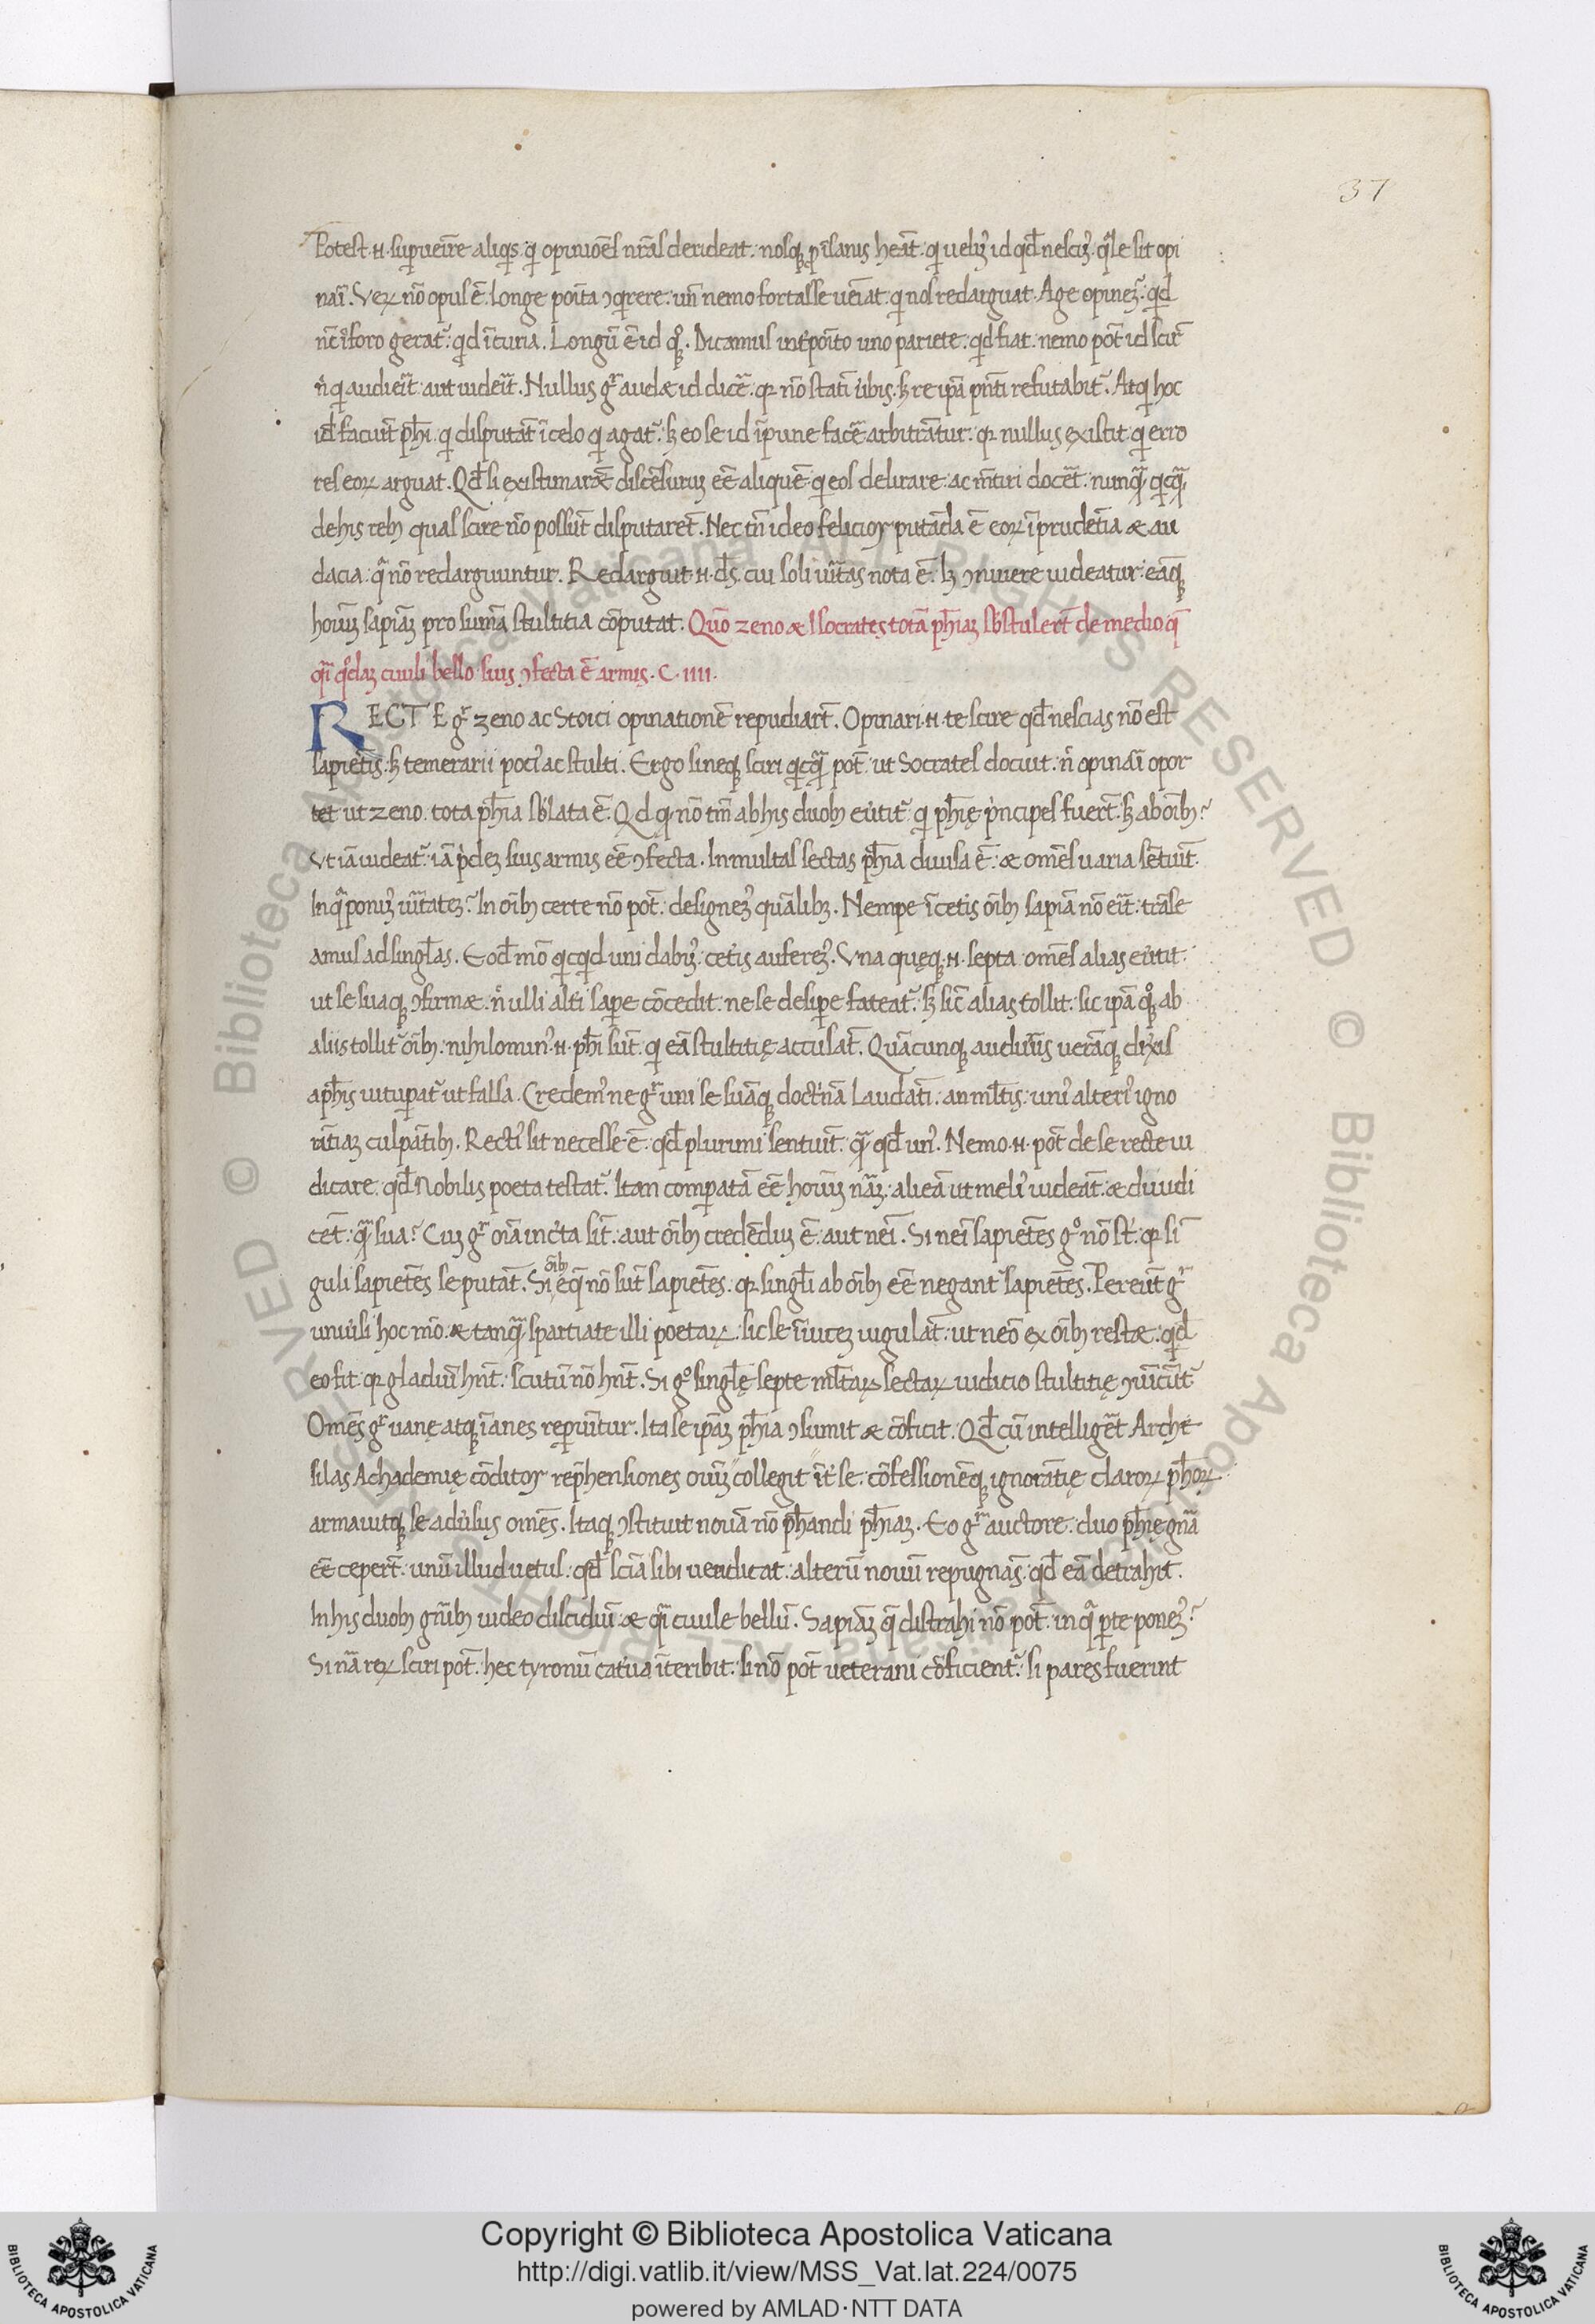 37
Potest .n. supueire aliqis qi opinioēs nr̄as derideat. nosq; p īsanis heāt. qi velim id qd nescim qle sit opi
nari. Vez nō opus ē. longe poita ꝯqrere. un nemo fortasse veniat. qi nos redarguat. Age opinem. qid
nc ī foro gerat. qid ī curia. Longū ē id qq. Dicamus int̄poito uno pariete. qid fiat. nemo pōt id scire
n qi audierit aut viderit. Nullus gr audæ id dice. qr nō stati ubis. s; re ipa pnti refutabit. Atqi hoc
id faciūt phi. qi disputāt ī celo qi agat. s; eo se id īpune facē arbitrātur. qr nullus existit qi erro
res eoꝝ arguat. Qd si existimaræ discēsurum eē aliquē qi eos delirare. ac mtiri docēt. nunqā qicqā
de his reb quas scire nō possūt disputarēt. Nec tn ideo felicior putāda ē eoꝝ īprudētia æ au
dacia. qa nō redarguuntur. Redarguit .n. ds. cui soli ūitas nota ē. l; ꝯnivere videatur. eāq;
houm sapiam pro suma stultitia cōputat. Quō zeno æ socrates totā phiam sbstulert de medio q
qi qdam civili bello suis ꝯfecta ē armis. C. IIII.
RECTE gr zeno ac Stoici opinationē repudiart. Opinari .n. te scire qd nescias nō est
sapiētis. s; temerarii poci ac stulti. Ergo si neq; sciri qicqā pōt. ut Socrates docuit. n opinari opor
tet ut zeno. tota phia sblata ē. Qd qi nō tm ab his duob evtit. qi phię pncipes fuert. s; ab oīb?
Ut iā videat iā pdem suis armis eē ꝯfecta. In multas sectas phia divisa ē. æ omēs varia sētiūt.
In qa ponim ūitatem? In oīb certe nō pōt. designem quālibz. Nempe ī cetis oīb sapia nō erit. trāse
amus ad singlas. Eod mō qicqid uni dabim. cetis auferem. Vna quęq; .n. septa omēs alias evtit.
ut se suaq; ꝯfirmæ. n ulli alti sape cōcedit. ne se desipe fateat. s; sic alias tollit. sic ipa qq ab
aliis tollit oīb. nihilomin .n. phi sūt. qi eā stultitię accusāt. Quācunq; audieris verāq; dixis
a phis vitupat ut falsa. Credem ne gr uni se suāq; doctnā laudāti. an mltis. uni alteri igno
rātiam culpātib. Recti sit necesse ē. qd plurimi sentiūt. qa qd un. Nemo .n. pōt de se recte iu
dicare. qd Nobilis poeta testat. Itam compatā eē houm nam. aliea ut meli videāt. æ diiudi
cēt. qa sua? Cum gr oia incta sit. aut oīb credēdum ē. aut nei. Si nei sapiētes g nō st. qr si
guli sapiētes se putāt. Si oīb eq nō sūt sapiētes. qr singli ab oīb eē negant sapiētes. Pereūt gr
univsi hoc mō. æ tanqā sparciate illi poetaꝝ. sic se īvicem iugulāt. ut neō ex oīb restæ. qd
eo fit. qr gladiū hnt. scutū nō hnt. Si g singlę septe mltaꝝ sectaꝝ iudicio stultitię ꝯvicūt
Omēs gr vanę atq; īanes repiūtur. Ita se ipam phia ꝯsumit æ cōficit. Qd cū intelligēt Arche
silas Achademię cōditor rephensiones oium collegit īt se. cōfessionēq; ignorātię claroꝝ phoꝝ
armavitq; se advsus omēs. Itaq; ꝯstituit novā nō phandi phiam. Eo gr auctore. duo phię gnā
eē cepert. unū illud vetus. qd sciā sibi vendicat. alterū novū repugnās. qd eā detrahit.
In his duob gnib video discidiū. æ qi civile bellū. Sapiam q distrahi nō pōt. in qa pte ponem?
Si na reꝝ sciri pōt. hec tyronū catva īteribit. si nō pōt veterani cōficient. si pares fuerint
Copyright © Biblioteca Apostolica Vaticana
http://digi.vatlib.it/view/MSS_Vat.lat.224/0075
powered by AMLAD·NTT DATA